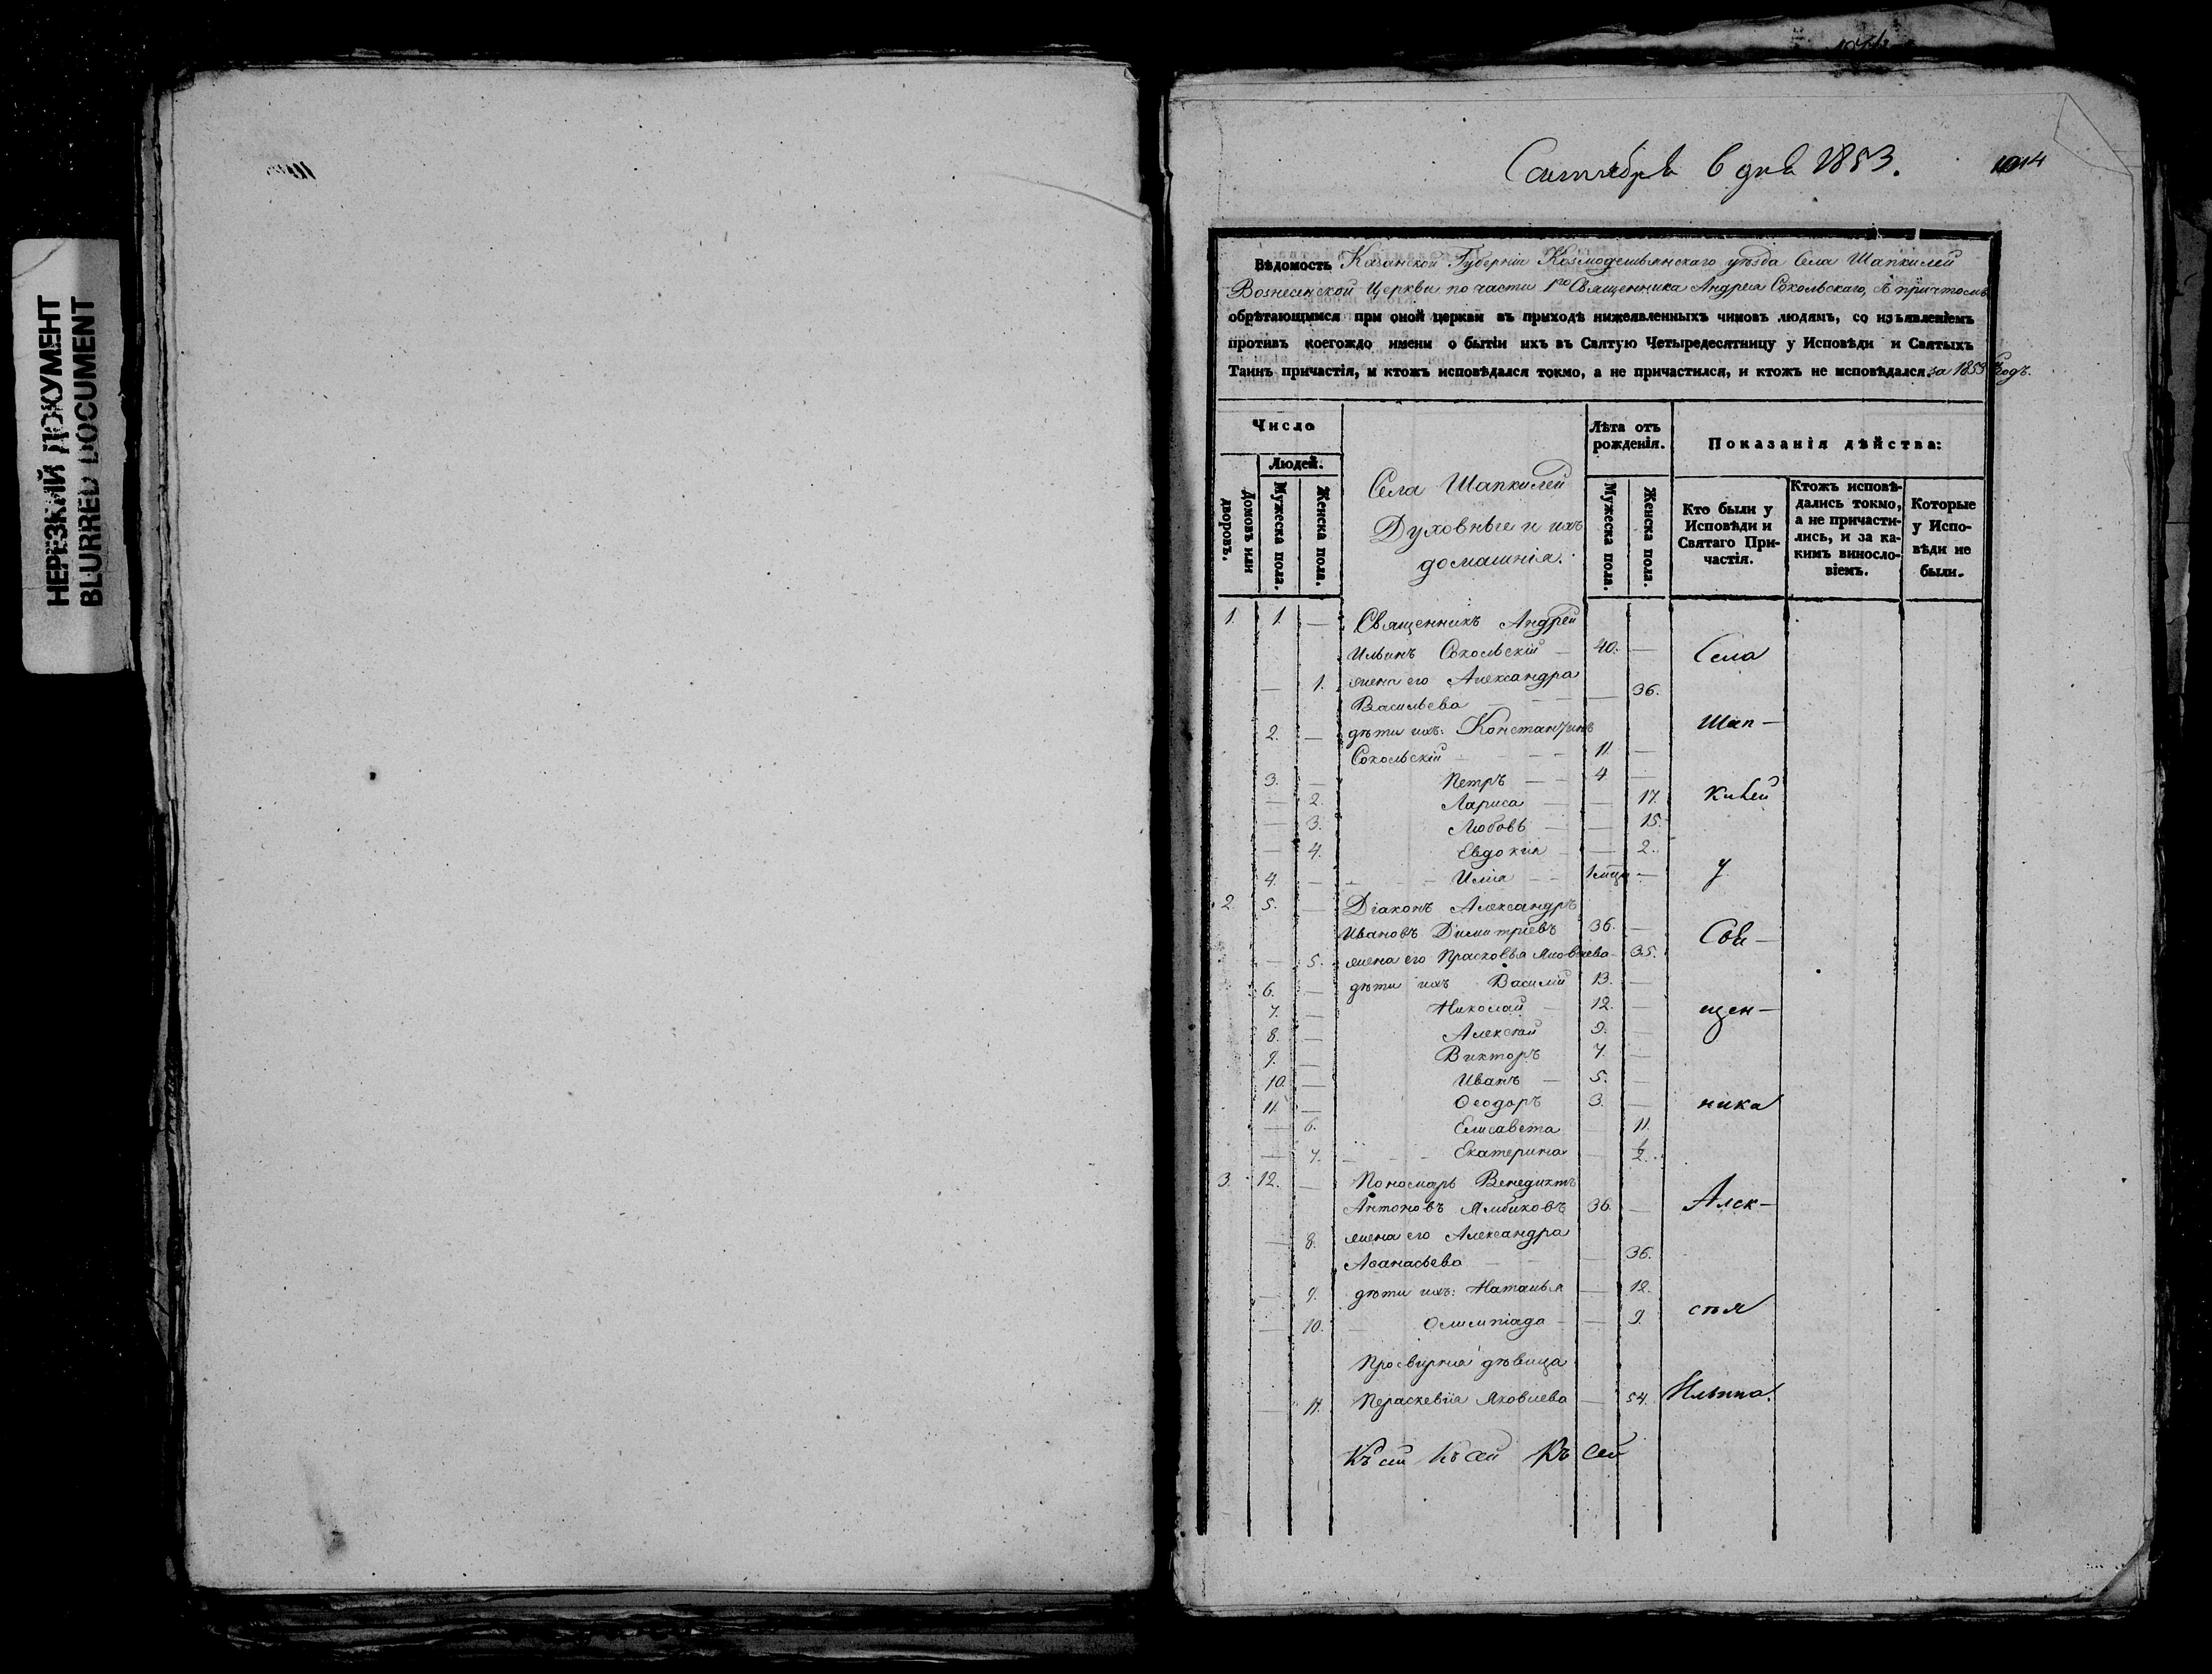 НЕРЕЗКИЙ ДОКУМЕНТ
BLURRED DOCUMENT
Сентября 6 дня 1853.
1014
Вѣдомость Казанской Губерніи Козмодемьянскаго уѣзда Села Шапкилей
Вознесенской Церкви по части 1го Священника Андрея Сокольскаго, съ причтомъ
обрѣтающимся при оной церкви въ приходѣ нижеявленныхъ чиновъ людямъ, со изъявленіемъ
противъ коегождо имени о бытіи ихъ въ Святую Четыредесятницу у Исповѣди и Святыхъ
Таинъ причастія, и ктожъ исповѣдался токмо, а не причастился, и ктожъ не исповѣдался. за 1853 Годъ.
Число
Людей.
Домовъ или дворовъ.
Мужеска пола.
Женска пола.
Села Шапкилей
Духовные и ихъ
домашнія.
Лѣта отъ рожденія.
Мужеска пола.
Женска пола.
Показанія дѣйства:
Кто были у Исповѣди и Святаго Причастія.
Ктожъ исповѣдались токмо, а не причастились, и за какимъ винословіемъ.
Которые у Исповѣди не были.
1. 1. — Священникъ Андрей
Ильинъ Сокольскій — 40. — Села
— 1. жена его Александра
Васильева — — 36.
2. — дѣти ихъ: Константинъ Шап—
Сокольскій — 11. —
3. — Петръ — 4 —
— 2. Лариса — — 17. килей
— 3. Любовь — — 15.
— 4. Евдокия — — 2.
4. — Илія — 1 мѣця — у
2. 5. — Діаконъ Александръ
Ивановъ Димитріевъ 36. — Свя—
— 5. жена его Прасковья Яковлева 35.
6. — дѣти ихъ Василій 13. —
7. — Николай — 12. — щен—
8. — Алексѣй 9. —
9. — Викторъ 7. —
10. — Иванъ — 5. —
11. — Ѳеодоръ 3. — ника
— 6. Елисавета 11.
— 7. Екатерина ½.
3. 12. — Пономарь Венедиктъ
Антоновъ Ямбиковъ 36. — Алек—
— 8. жена его Александра
Аѳанасьева — — 36.
— 9. дѣти ихъ: Наталья — 12.
— 10. Олимпіада — — 9. сѣя
Просвирня дѣвица
— 11. Параскевія Яковлева — 54. Ильина.
Къ сей Къ сей Къ сей